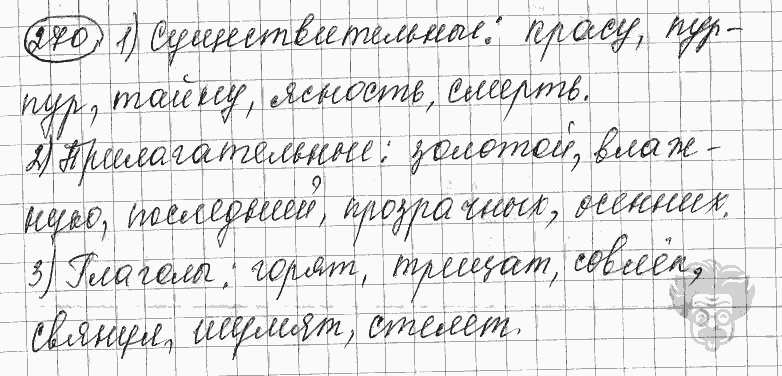 270. 1) Существительные: красу, пур-
пур, тайну, ясность, смерть.
2) Прилагательные: золотой, влаж-
ную, последней, прозрачных, осенних.
3) Глаголы: горят, трещат, совлёк,
свянул, шумят, стелет.